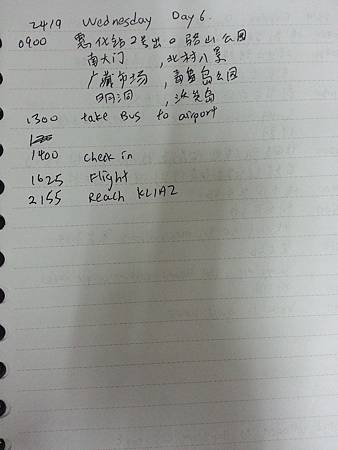 24/9 Wednesday Day 6.
0900 惠化站2号出口 骆山公园
南大门 , 北村八景
广藏市场 , 岛公园
明洞 , 汝矣岛
1300 take Bus to airport
1400 check in
1625 Flight
2155 Reach KLIA2